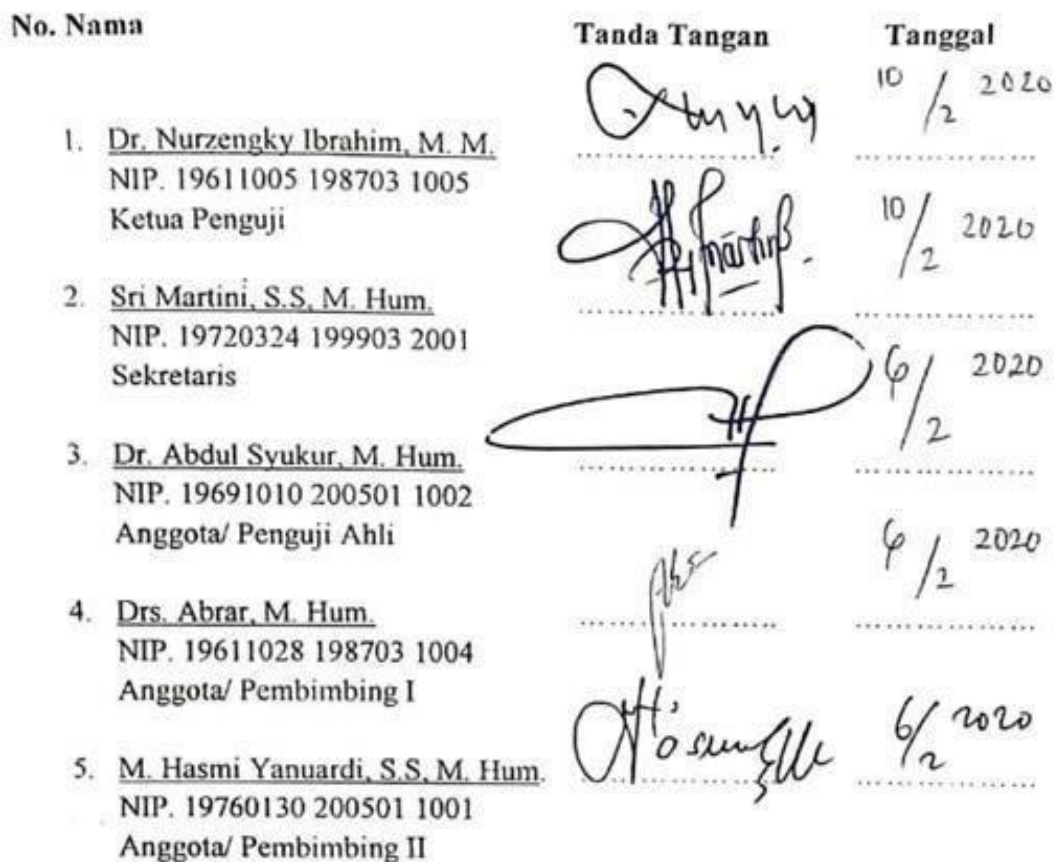 No. Nama Tanda Tangan Tanggal
10/2 2020
1. Dr. Nurzengky Ibrahim, M. M.
NIP. 19611005 198703 1005
Ketua Penguji
10/2 2020
2. Sri Martini, S.S, M. Hum.
NIP. 19720324 199903 2001
Sekretaris
6/2 2020
3. Dr. Abdul Syukur, M. Hum.
NIP. 19691010 200501 1002
Anggota/ Penguji Ahli
6/2 2020
4. Drs. Abrar, M. Hum.
NIP. 19611028 198703 1004
Anggota/ Pembimbing I
6/2 2020
5. M. Hasmi Yanuardi, S.S, M. Hum.
NIP. 19760130 200501 1001
Anggota/ Pembimbing II